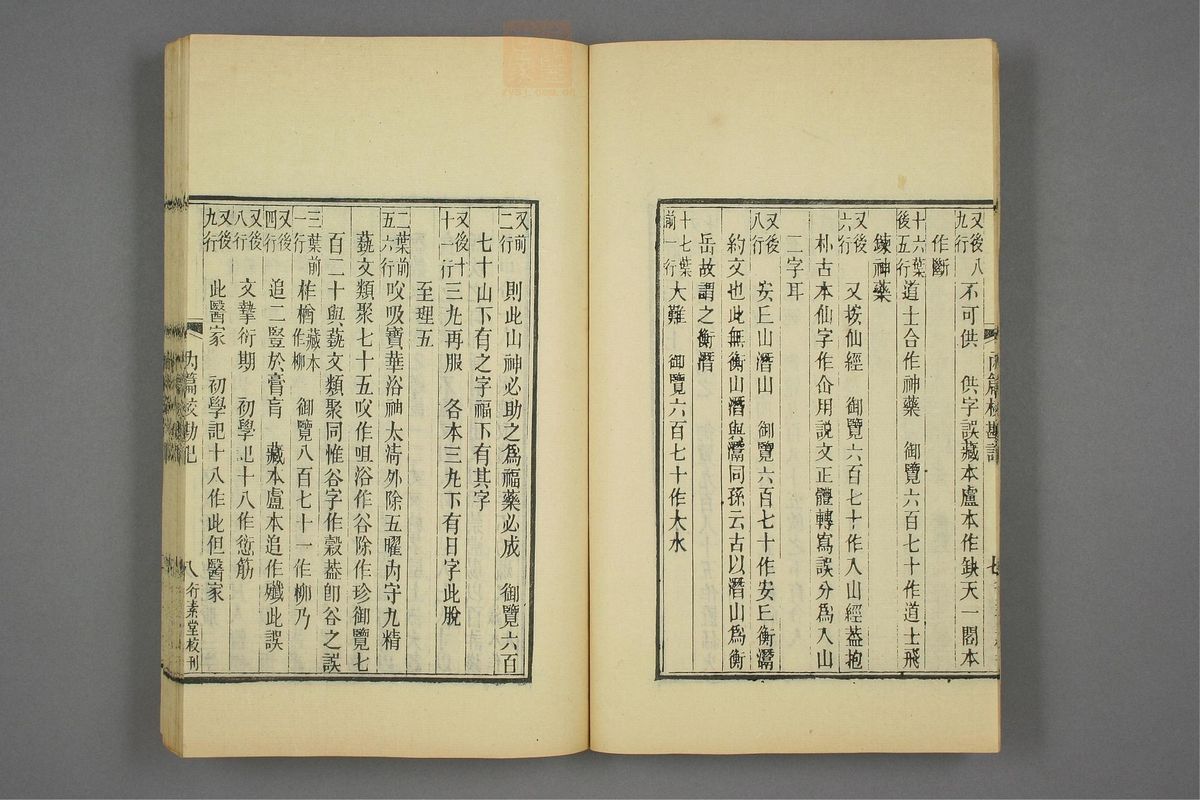 又後八九行　不可供　供字誤藏本盧本作缺天一閣本
作斷
十六葉後五行道士合作神藥　御覽六百七十作道士飛
鍊神藥
又後六行　又按仙經　御覽六百七十作入山經葢抱
朴古本仙字作仚用説文正體轉寫誤分爲入山
二字耳
又後八行　安丘山潛山　御覽六百七十作安丘衡灊
約文也此無衡山潛與灊同孫云古以潛山爲衡
岳故謂之衡潛
十七葉前一行大難　御覽六百七十作大水
又前二行　則此山神必助之爲福藥必成　御覽六百
七十山下有之字福下有其字
又後十十一行三九再服　各本三九下有日字此脫
至理五
二葉前五六行㕮吸寶華浴神太淸外除五曜內守九精
蓺文類聚七十五㕮作咀浴作谷除作珍御覽七
百二十與蓺文類聚同惟谷字作穀葢卽谷之誤
三葉前一行柞楢藏本作柳　御覽八百七十一作柳乃
又後四行　追二豎於膏肓　藏本盧本追作殲此誤
又後八行　文摯衍期　初學記十八作愆筋
又後九行　此醫家　初學記十八作此但醫家
內篇校勘記
八
行素堂校刊
內篇校勘記
七